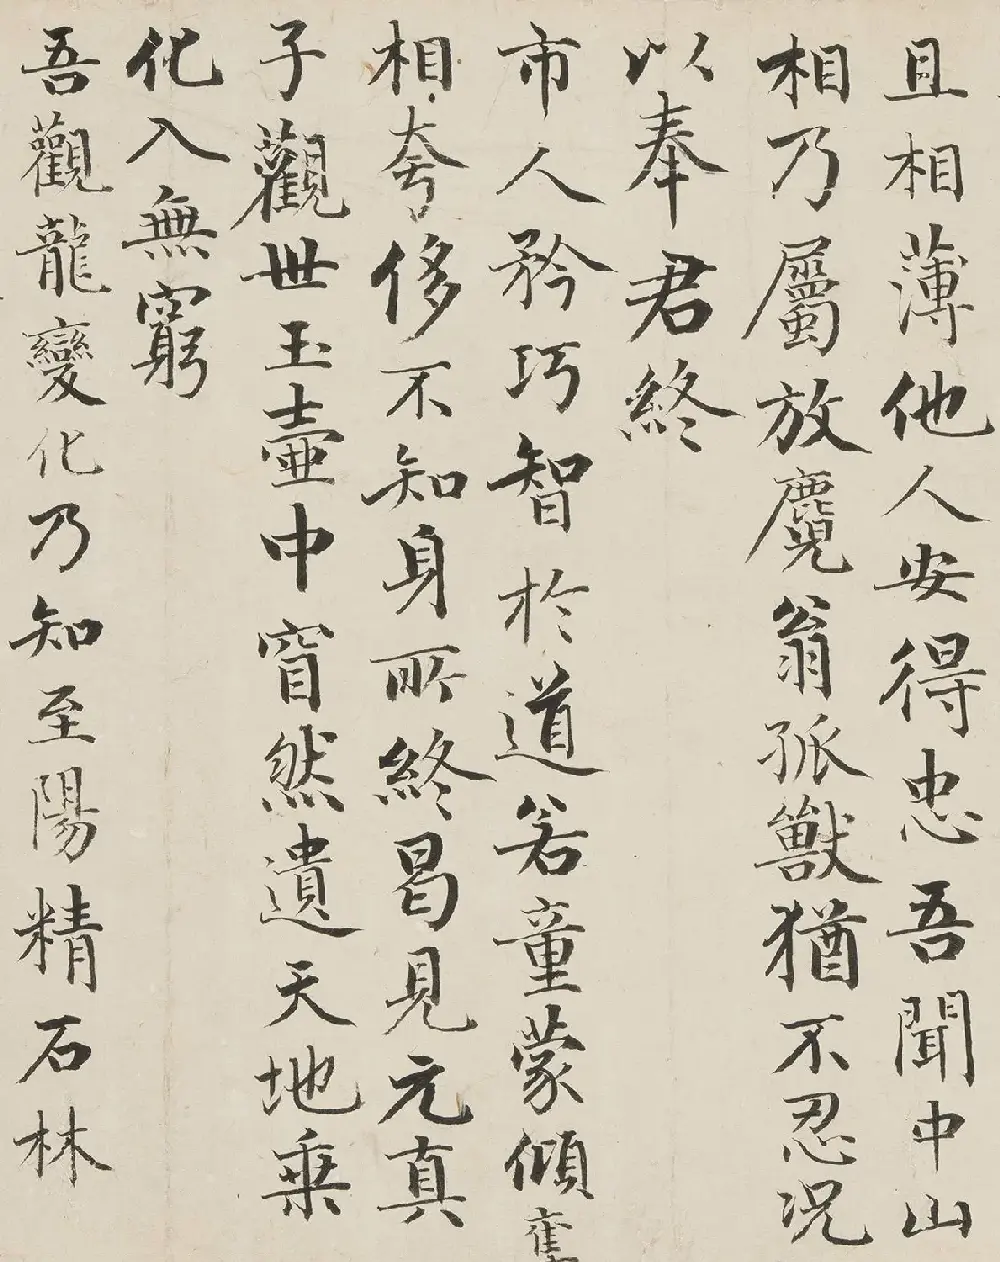 且相薄他人安得忠吾聞中山
相乃屬放麑翁孤獸猶不忍況
以奉君終
市人矜巧智於道若童蒙傾奪
相夸侈不知身所終曷見元真
子觀世玉壺中窅然遺天地乘
化入無窮
吾觀龍變化乃知至陽精石林